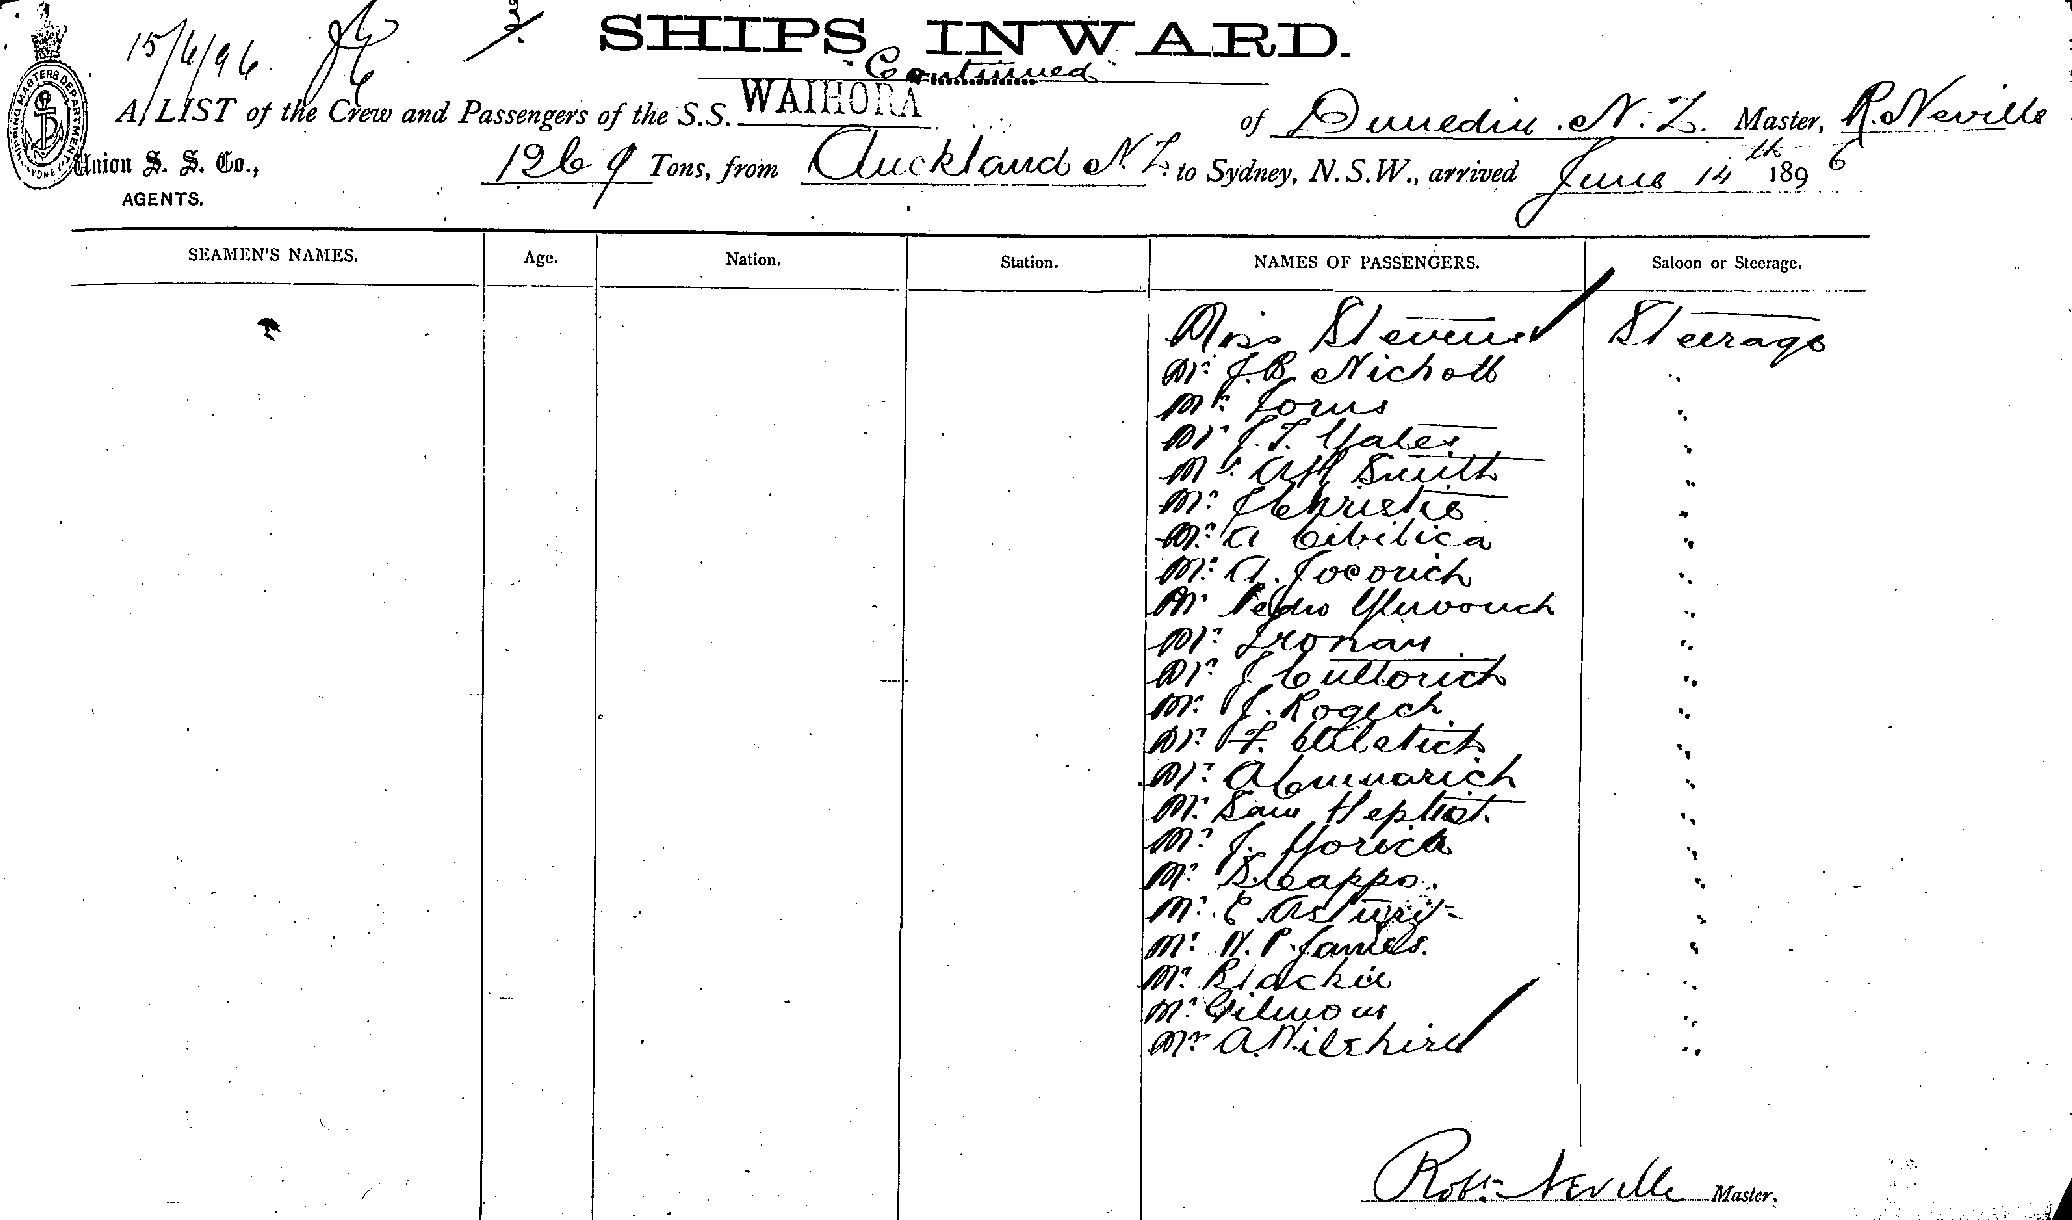 15/6/96.
SHIPS INWARD.
Continued
A LIST of the Crew and Passengers of the S.S. WAIHORA of Dunedin N.Z. Master, R. Neville
Union S. S. Co., 1269 Tons, from Auckland N Z to Sydney, N.S.W., arrived June 14th 1896
AGENTS.
SEAMEN'S NAMES. Age. Nation. Station. NAMES OF PASSENGERS. Saloon or Steerage.
Miss Stevens Steerage
Mr J.B. Nicholl "
Mr "
Mr J.T. Yates "
Mr AH Smith "
Mr J Christie "
Mr A Cibilica "
Mr A. Jocovich "
Mr Pedro "
Mr Tronan "
Mr J Cullovich "
Mr J. Rogich "
Mr F. "
Mr A "
Mr Sam Heptiot. "
Mr J. Yorich "
Mr B. Cappo. "
Mr E "
Mr W. P. James. "
Mr Blackie "
Mr Gilmour "
Mr A. Wilshire "
Robt Neville Master.